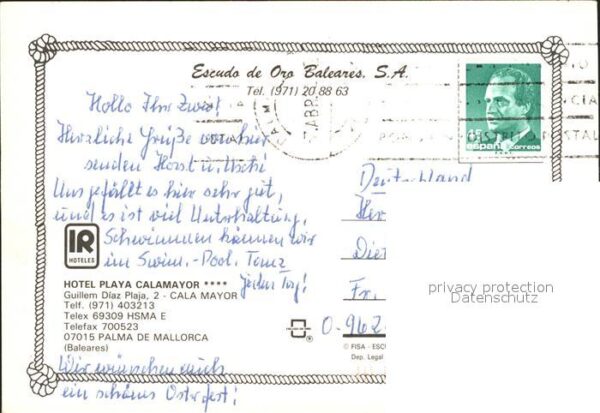 Escudo de Oro Baleares, S.A.
Tel. (971) 20 88 63
Hallo Ihr Zwei!
Herzliche Grüße von hier
senden Horst u. Uschi
Uns gefällt es hier sehr gut,
und es ist viel Unterhaltung,
Schwimmen können wir
im Swim.-Pool. Tanz
jeden Tag!
IR
HOTELES
HOTEL PLAYA CALAMAYOR ****
Guillem Díaz Plaja, 2 - CALA MAYOR
Telf. (971) 403213
Telex 69309 HSMA E
Telefax 700523
07015 PALMA DE MALLORCA
(Baleares)
Wir wünschen euch
ein schönes Osterfest!
45
españa
correos
ABR
POSTAL
Deutschland
Diet
Fr.
0-962
privacy protection
Datenschutz
© FISA - ESCU
Dep. Legal